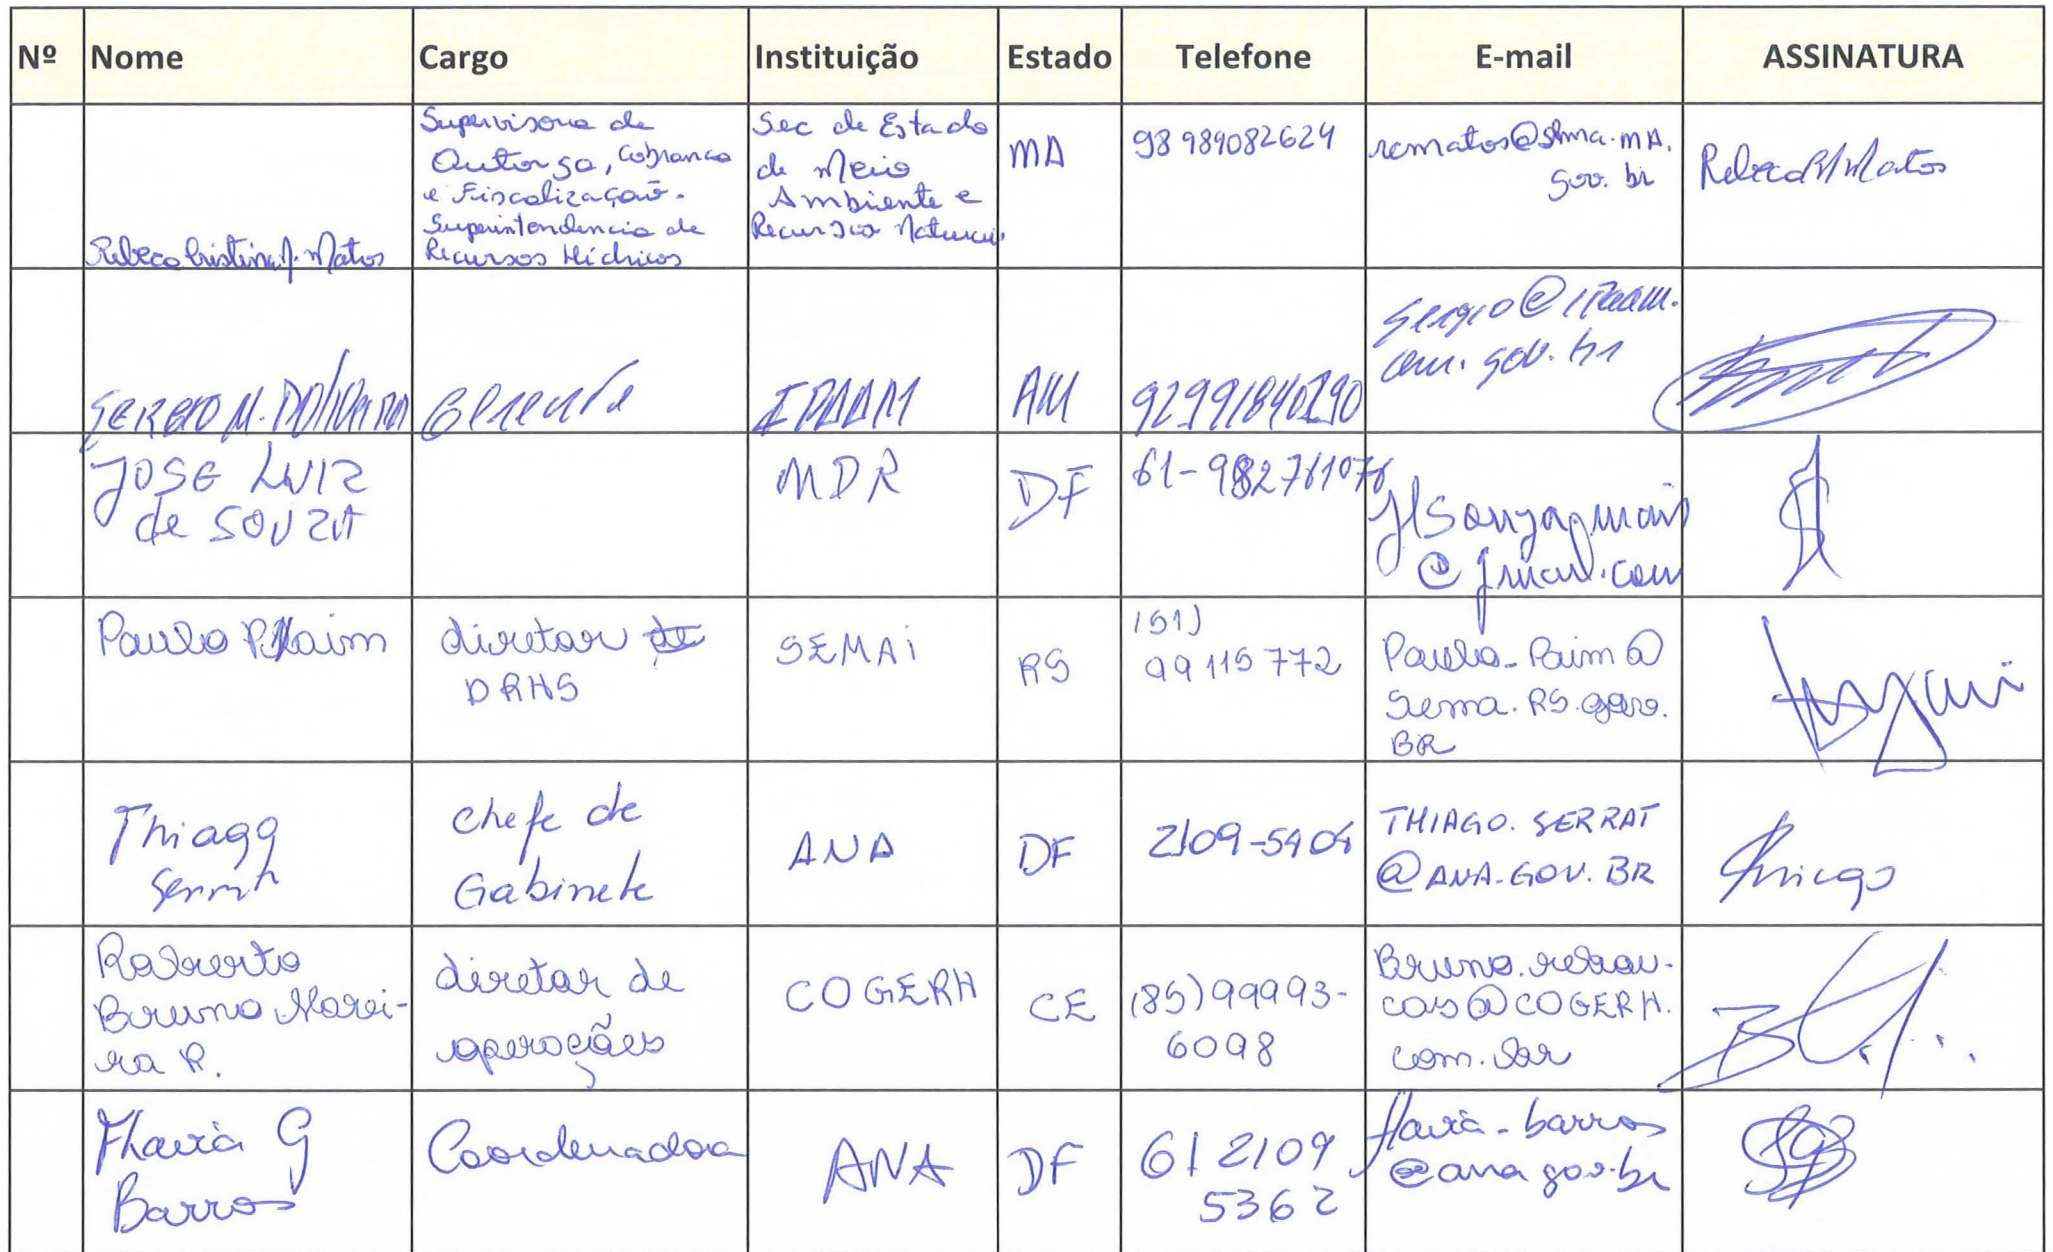 Nº Nome Cargo Instituição Estado Telefone E-mail ASSINATURA
Supervisora de
Outorga, Cobrança
e Fiscalização.
Superintendência de
Recursos Hídricos
Sec de Estado
de Meio
Ambiente e
Recursos Naturais
MA
98 989082624
rcmatos@sema.MA.
gov.br
Matos
Matos
SERGIO M.
Gerente
IPAAM
AM
sergio@ipaam.
am.gov.br
JOSE LUIZ
de SOUZA
MDR
DF
61-982761076
@gmail.com
Paulo P. Paim
diretor de
DRHS
SEMAI
RS
(51)
99115772
Paulo-Paim@
Sema.RS.gov.
BR
Thiago
Serrat
Chefe de
Gabinete
ANA
DF
2109-5404
THIAGO.SERRAT
@ANA.GOV.BR
Thiago
Roberto
Bruno Morei-
ra R.
diretor de
operações
COGERH
CE
(85)99993-
6098
Bruno.rebou-
cas@COGERH.
com.br
Flavia G
Barros
Coordenadora
ANA
DF
61 2109
5362
flavia-barros
@ana.gov.br